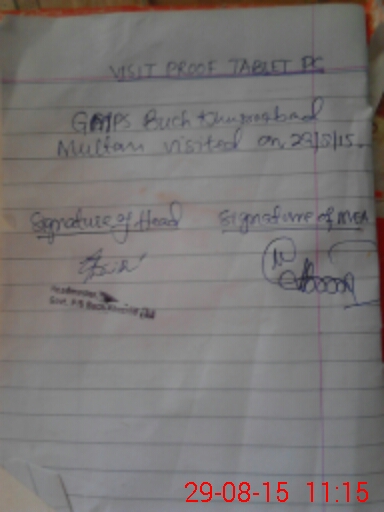 VISIT PROOF TABLET PC
GMPS Buch
Multan visited on 29/8/15.
Signature of Head Signature of MEA
Headmaster
Govt. P/S Buch
29-08-15 11:15